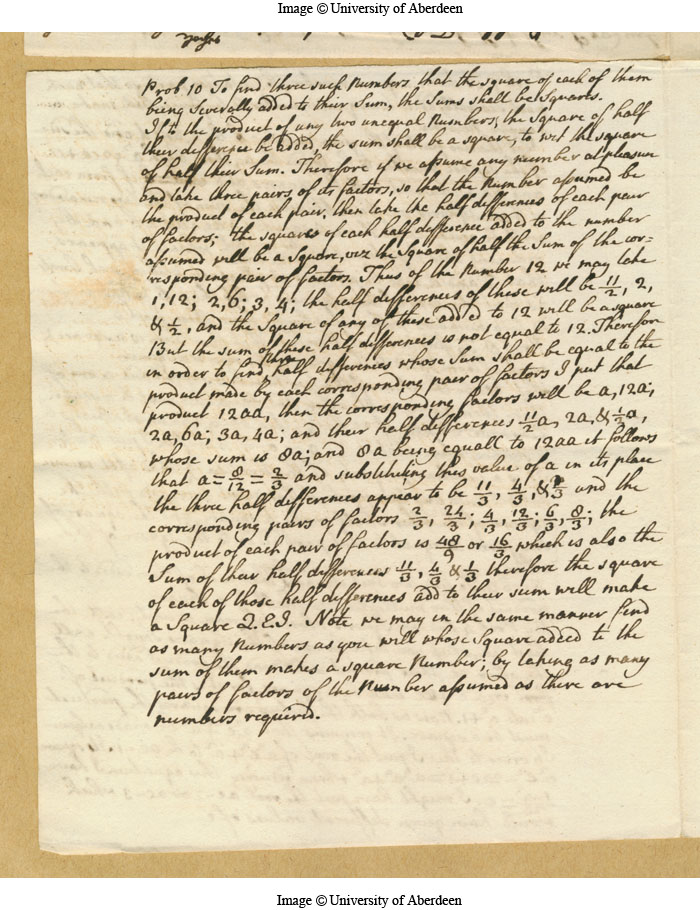 Image © University of Aberdeen
Prob 10 To find three such Numbers that the square of each of them
being Severally added to their Sum, the Sums shall be Squares.
If to the product of any two unequal Numbers, the Square of half
their difference be added, the sum shall be a square, to wit the square
of half their Sum. Therefore if we assume any number at pleasure
and take three pairs of its factors, so that the Number assumed be
the product of each pair, then take the half differences of each pair
of factors; the squares of each half difference added to the number
assumed will be a Square, viz the Square of half the Sum of the cor=
responding pair of factors. Thus of the Number 12 we may take
1, 12; 2, 6; 3, 4; the half differences of these will be 11/2, 2,
& 1/2, and the Square of any of these added to 12 will be a square
But the sum of these half differences is not equal to 12. Therefore
in order to find three half differences whose Sum shall be equal to the
product made by each corresponding pair of factors I put that
product 12aa, then the corresponding factors will be a, 12a;
2a, 6a; 3a, 4a; and their half differences 11/2a, 2a, & 1/2a,
whose sum is 8a; and 8a being equall to 12aa it follows
that a = 8/12 = 2/3 and substituting this value of a in its place
the three half differences appear to be 11/3, 4/3, & 1/3 and the
corresponding pairs of factors 2/3, 24/3; 4/3, 12/3; 6/3, 8/3; the
product of each pair of factors is 48/9 or 16/3 which is also the
Sum of their half differences 11/3, 4/3 & 1/3 therefore the square
of each of those half differences add to their sum will make
a Square Q.E.I. Note we may in the same manner find
as many Numbers as you will whose Square added to the
sum of them makes a square Number; by taking as many
pairs of factors of the Number assumed as there are
numbers required.
Image © University of Aberdeen